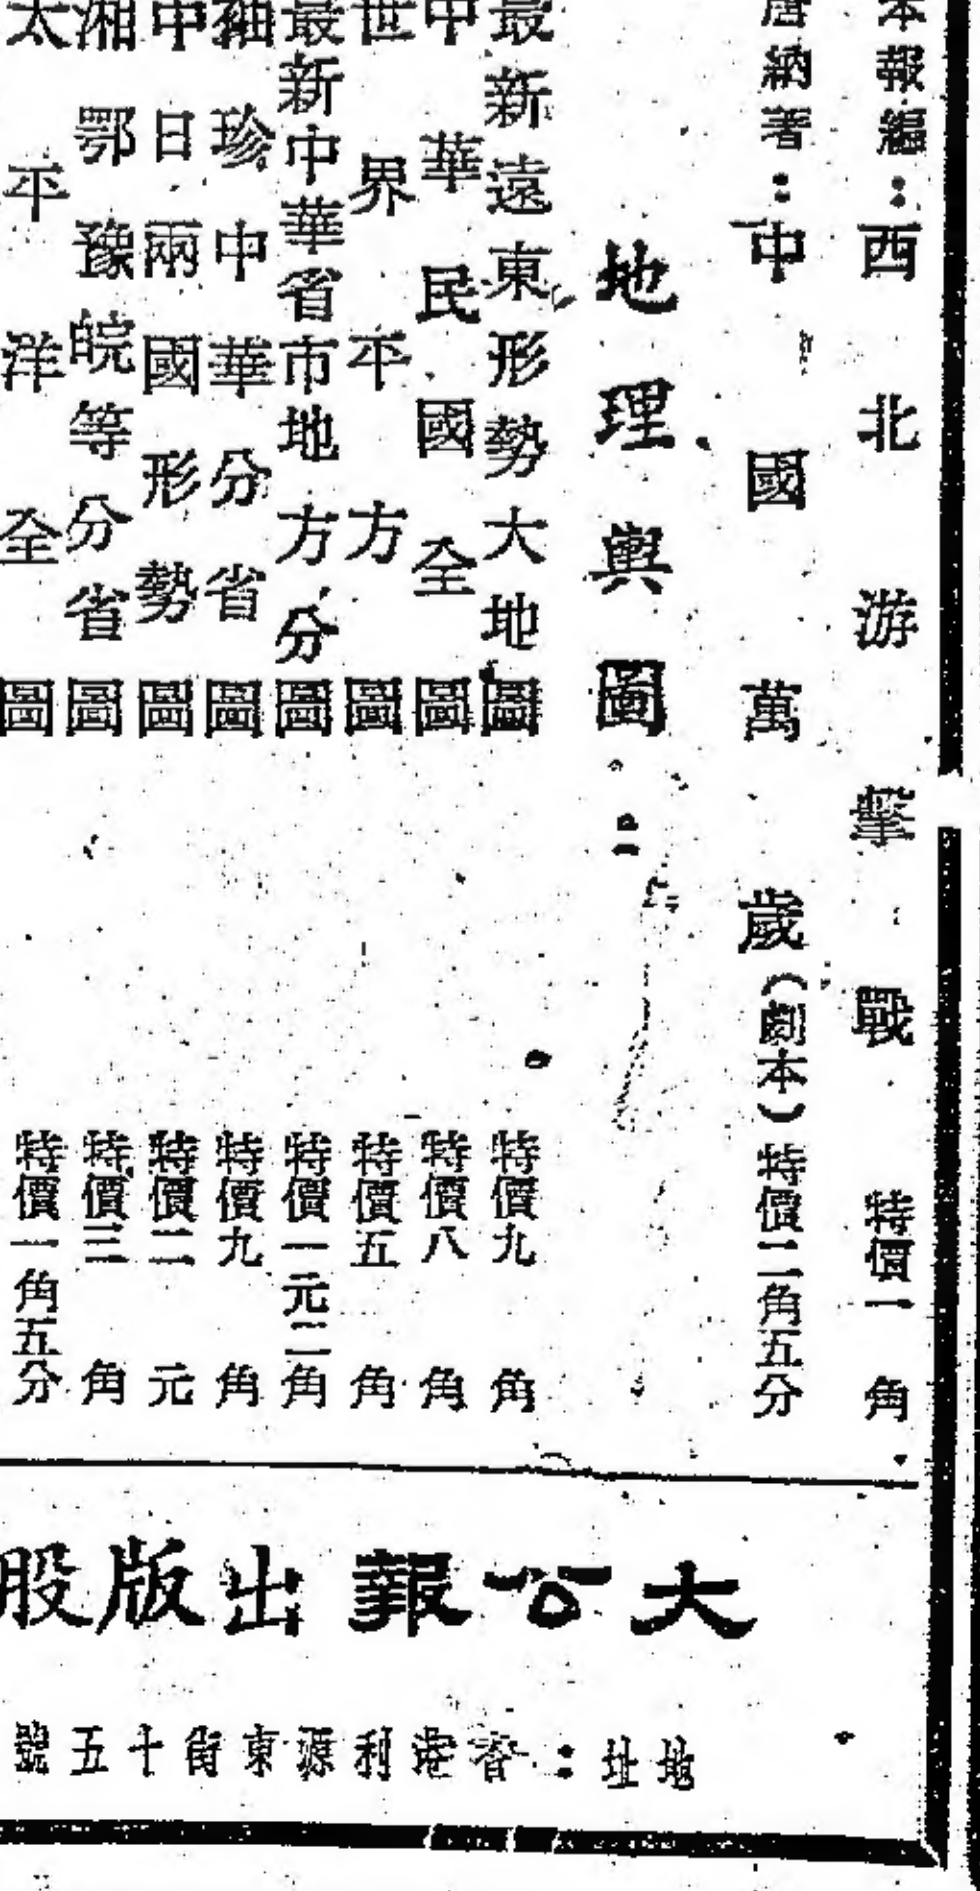 本報編：西北游擊戰 特價一角
唐納著：中國萬歲（劇本）特價二角五分
地理輿圖
最新遠東形勢大地圖 特價九角
中華民國全圖 特價八角
世界平方圖 特價五角
最新中華省市地方分圖 特價一元二角
袖珍中華分省圖 特價九角
中日兩國形勢圖 特價二元
湘鄂豫皖等分省圖 特價三角
太平洋全圖 特價一角五分
大公報出版股
地址：香港利源東街十五號